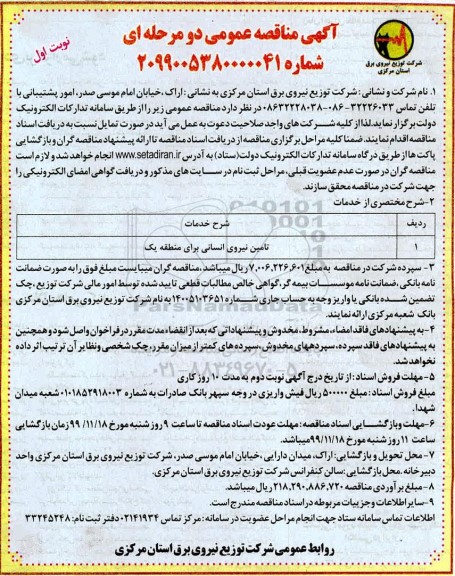 آگهی مناقصه عمومی دو مرحله ای
شماره ۲۰۹۹۰۰۵۳۸۰۰۰۰۰۴۱
نوبت اول
شرکت توزیع نیروی برق
استان مرکزی
۱. نام شرکت و نشانی : شرکت توزیع نیروی برق استان مرکزی به نشانی : اراک، خیابان امام موسی صدر، امور پشتیبانی با
تلفن تماس ۳۲۲۲۶۰۳۳-۰۸۶ - ۰۸۶۳۲۲۲۸۰۳۸ در نظر دارد مناقصه عمومی زیر را از طریق سامانه تدارکات الکترونیک
دولت برگزار نماید. لذا از کلیه شرکت های واجد صلاحیت دعوت به عمل می آید در صورت تمایل نسبت به دریافت اسناد
مناقصه اقدام نمایند. ضمنا کلیه مراحل برگزاری مناقصه از دریافت اسناد مناقصه تا ارائه پیشنهاد مناقصه گران و بازگشایی
پاکت ها از طریق درگاه سامانه تدارکات الکترونیک دولت(ستاد) به آدرس www.setadiran.ir انجام خواهد شد و لازم است
مناقصه گران در صورت عدم عضویت قبلی، مراحل ثبت نام در سایت های مذکور و دریافت گواهی امضای الکترونیکی را
جهت شرکت در مناقصه محقق سازند.
۲-شرح مختصری از خدمات
ردیف شرح خدمات
۱ تامین نیروی انسانی برای منطقه یک
۳- سپرده شرکت در مناقصه به مبلغ ۷,۰۰۶,۲۲۶,۶۰۱ ریال میباشد. مناقصه گران میبایست مبلغ فوق را به صورت ضمانت
نامه بانکی، ضمانت نامه موسسات بیمه گر، گواهی خالص مطالبات قطعی تایید شده توسط امور مالی شرکت توزیع، چک
تضمین شده بانکی یا واریز وجه به حساب جاری شماره ۱۴۰۰۵۱۰۳۶۵۱ به نام شرکت توزیع نیروی برق استان مرکزی
بانک شعبه مرکزی ارائه نمایند.
۴- به پیشنهادهای فاقد امضاء، مشروط، مخدوش و پیشنهاداتی که بعد از انقضاء مدت مقرر در فراخوان واصل شود و همچنین
به پیشنهادهای فاقد سپرده، سپردههای مخدوش، سپرده های کمتر از میزان مقرر، چک شخصی و نظایر آن ترتیب اثر داده
نخواهد شد.
۵- مهلت فروش اسناد : از تاریخ درج آگهی نوبت دوم به مدت ۱۰ روز کاری
مبلغ فروش اسناد : مبلغ ۵۰۰۰۰۰ ریال فیش واریزی در وجه سپهر بانک صادرات به شماره ۰۱۰۱۸۵۲۹۱۸۰۰۳ شعبه میدان
شهدا.
۶-مهلت و بازگشایی اسناد مناقصه: مهلت عودت اسناد مناقصه تا ساعت ۹ روز شنبه مورخ ۹۹/۱۱/۱۸ زمان بازگشایی
ساعت ۱۱ روز شنبه مورخ ۹۹/۱۱/۱۸ میباشد.
۷- محل تحویل و بازگشایی: اراک، میدان دارایی، خیابان امام موسی صدر، شرکت توزیع نیروی برق استان مرکزی واحد
دبیرخانه . محل بازگشایی: سالن کنفرانس شرکت توزیع نیروی برق استان مرکزی.
۸-مبلغ برآوردی مناقصه ۲۱۸,۲۹۰,۸۸۶,۷۲۰ ریال میباشد.
۹-سایر اطلاعات و جزییات مربوطه در اسناد مناقصه مندرج است.
اطلاعات تماس سامانه ستاد جهت انجام مراحل عضویت در سامانه : مرکز تماس ۰۲۱۴۱۹۳۴ دفتر ثبت نام : ۳۳۲۴۵۲۴۸
روابط عمومی شرکت توزیع نیروی برق استان مرکزی